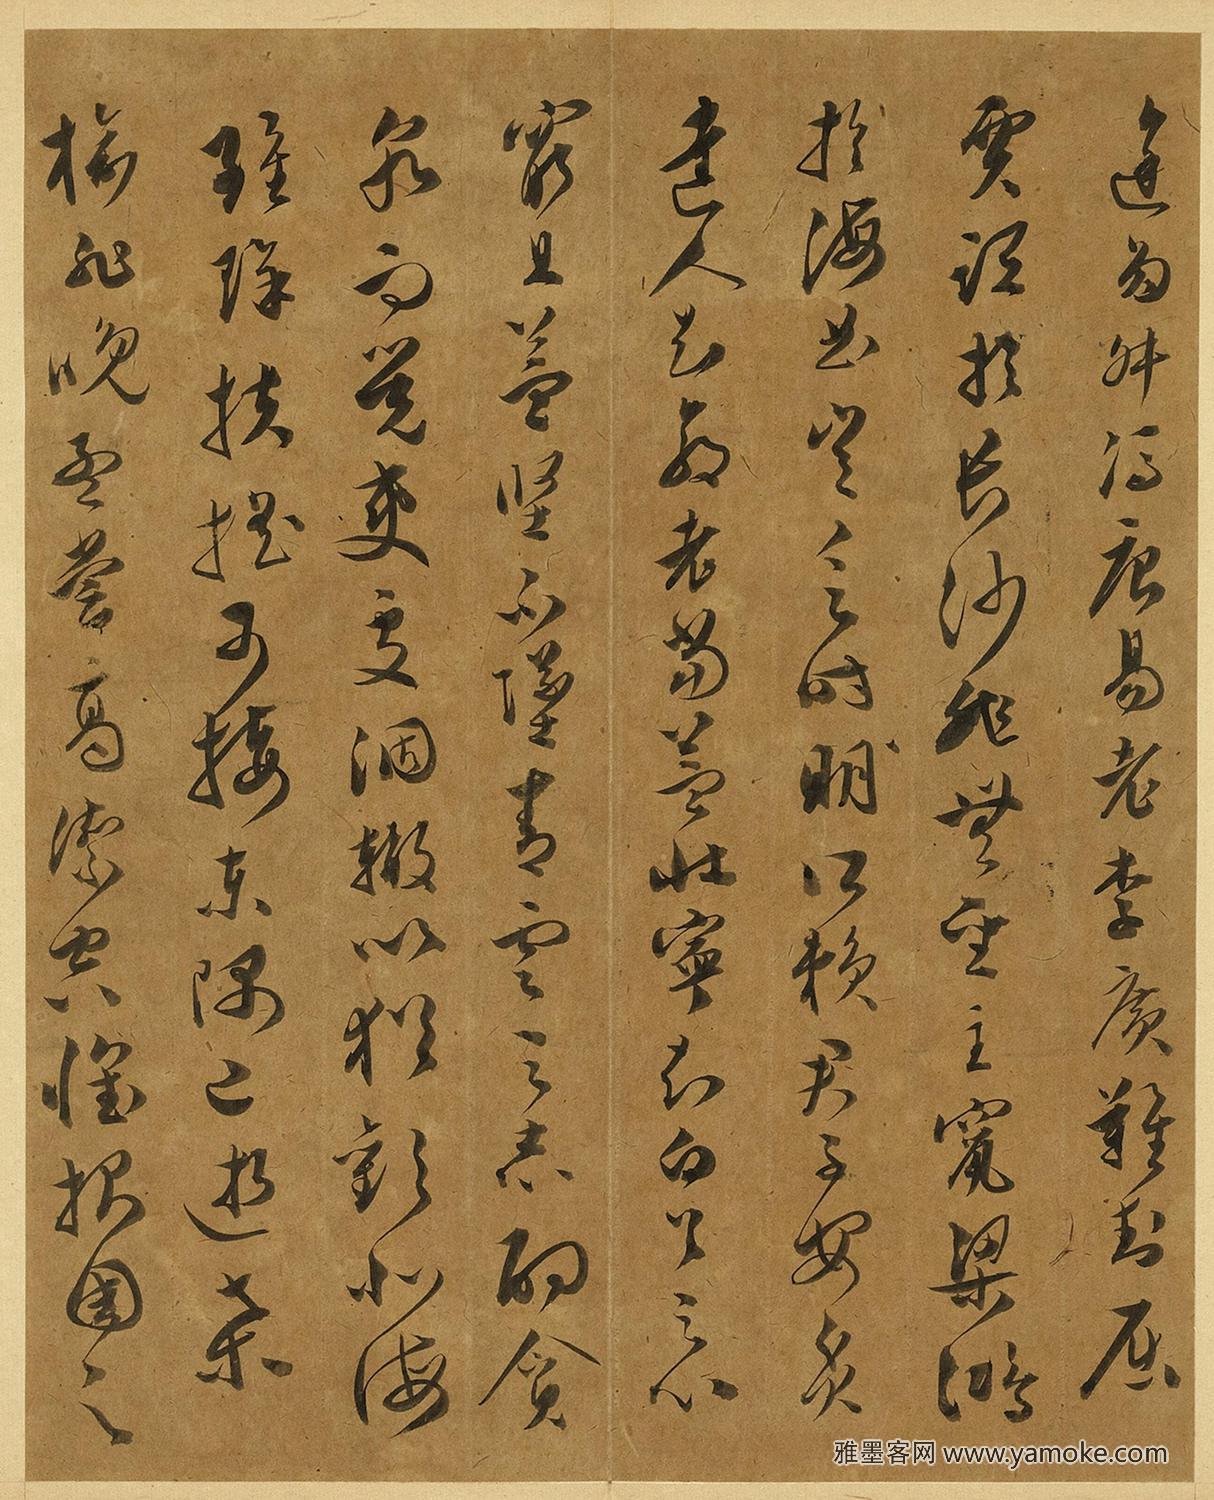 途多舛馮唐易老李廣難封屈
賈誼於長沙非無聖主竄梁鴻
於海曲豈乏時明所賴君子安貧
達人知命老當益壯寧知白首之心
窮且益堅不墜青雲之志酌貪
泉而覺爽處涸轍以猶歡北海
雖賒扶搖可接東隅已逝桑
榆非晚孟嘗高潔空懷報國之
雅墨客网 www.yamoke.com